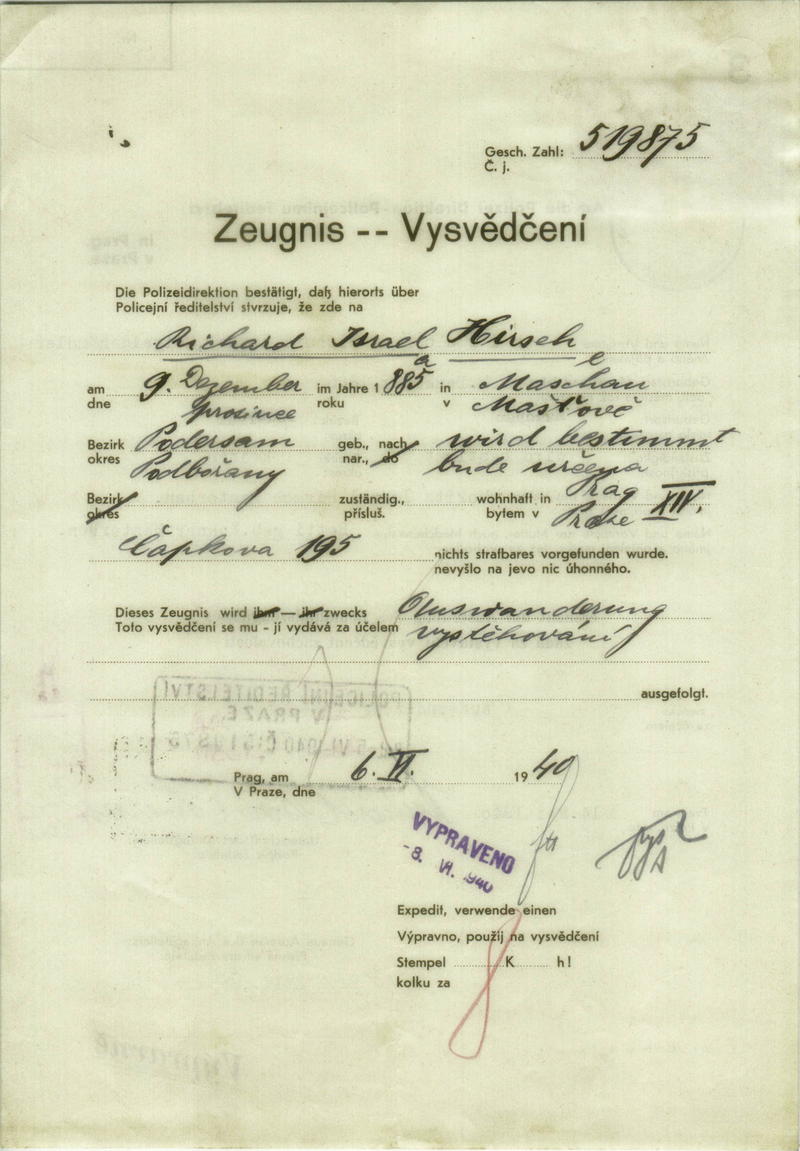 Gesch. Zahl: 519875
Č. j.
Zeugnis -- Vysvědčení
Die Polizeidirektion bestätigt, daß hierorts über
Policejní ředitelství stvrzuje, že zde na
Richard Israel Hirsch
a e
am 9. Dezember im Jahre 1885 in Maschau
dne prosince roku v Mašťově
Bezirk Podersam geb., nach wird bestimmt
okres Podbořany nar., do bude určena
Bezirk zuständig., wohnhaft in Prag XIV.
okres přísluš. bytem v Praze
Čápkova 195 nichts strafbares vorgefunden wurde.
nevyšlo na jevo nic úhonného.
Dieses Zeugnis wird ihm — ihr zwecks Auswanderung
Toto vysvědčení se mu - jí vydává za účelem vystěhování
ausgefolgt.
POLICEJNÍ ŘEDITELSTVÍ
V PRAZE
Prag, am 6. VI. 1940
V Praze, dne
VYPRAVENO
-8. VI. 1940
Expedit, verwende einen
Výpravno, použij na vysvědčení
Stempel K h!
kolku za